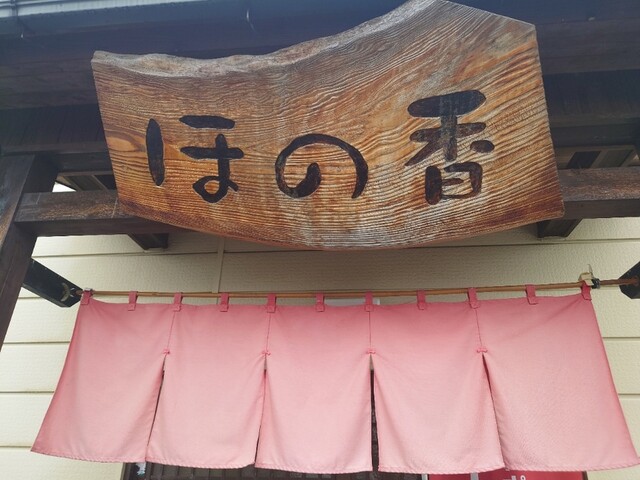 ほの香